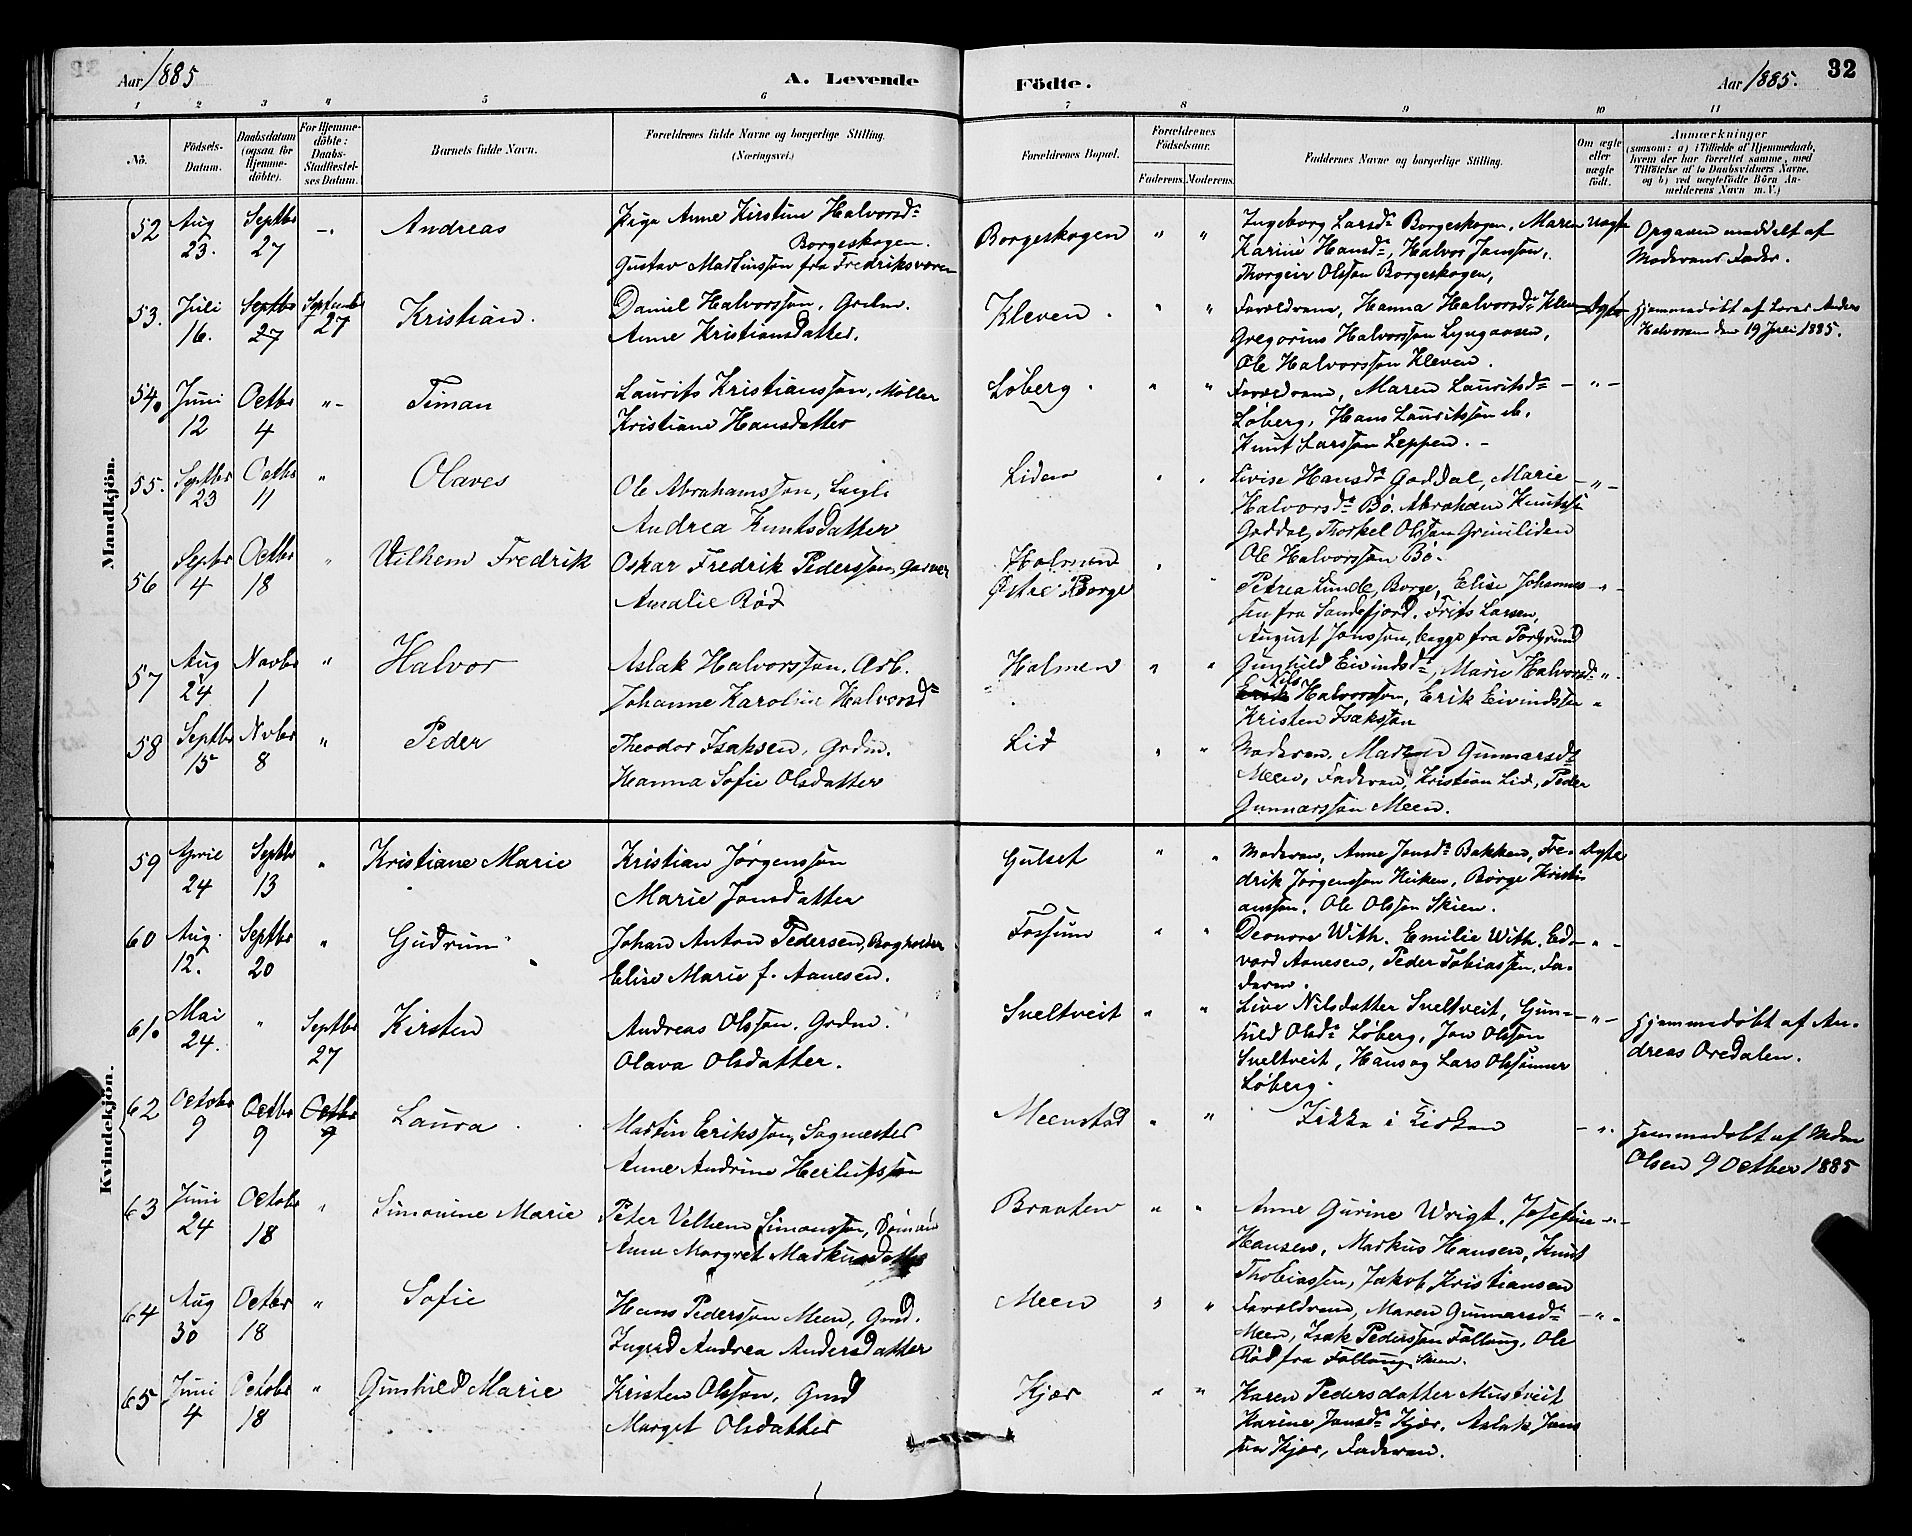 Aar 1885 A. Levende Födte. Aar 1885. 32
1 2 3 4 5 6 7 8 9 10 11
No. Födsels-Datum. Daabsdatum (ogsaa for Hjemme-döbte). For Hjemme-döbte: Daabs-Stadfæstelses Datum. Barnets fulde Navn. Forældrenes fulde Navne og borgerlige Stilling. (Næringsvei.) Forældrenes Bopæl. Forældrenes Födselsaar. Faderens. Moderens. Faddernes Navne og borgerlige Stilling. Om ægte eller uægte födt. Anmærkninger (saasom: a) i Tilfælde af Hjemmedaab, hvem der har forrettet samme, med Tilföielse af to Daabsvidners Navne, og b) ved uægtefödte Börn Anmelderens Navn m. V.)
Mandkjön.
52 Aug 23. Septbr 27 Andreas
Pige Anne Kirstine Halvorsdr
Borgeskogen.
Gustav Martinssøn fra Fredriksværn
Borgeskogen " "
Ingeborg Larsdr Borgeskogen, Maren
Karine Hansdr, Halvor Janssøn,
Thorgeir Olssøn Borgeskogen,
Uægte
Opgaven meddelt af
Moderens Fader.
53. Juli 16. Septbr 27 Septembr 27 Kristian.
Daniel Halvorssøn, Grdm.
Anne Kristiansdatter.
Kleven. " "
Forældrene, Hanna Halvorsdr Kleven
Gregorius Halvorssøn Lyngaasen,
Ole Halvorssøn Kleven.
Ægte
Hjemmedøbt af Lærer Anders
Halvorsen den 19 Juli 1885.
54. Juni 12 Octbr 4 " Timan
Laurits Kristianssøn, Møller
Kristiane Hansdatter
Løberg. " "
Forældrene, Maren Lauritsdr - " -
Løberg, Hans Lauritssøn ib.
Knut Larssøn Leppen.
55. Septbr 23 Octbr 11 " Olaves
Ole Abrahamssøn,
Andrea Knutsdatter
Liden " "
Livise Hansdr Goddal, Marie - " -
Halvorsdr Bø. Abraham Knutssøn
Goddal, Thorkel Olssøn Griniliden
Ole Halvorssøn Bø.
56 Septbr 4 Octbr 18 " Vilhem Fredrik
Oskar Fredrik Pederssøn, Garver
Amalie Rød
Holmen
Østre Borge
Petrea Lunde, Borge, Elise Johannes- "
sen fra Sandefjord. Frits Larsen,
August Janssøn, begge fra Porsgrund
57 Aug 24 Novbr 1 " Halvor
Aslak Halvorssøn. Arb.
Johanne Karoline Halvorsdr
Holmen " "
Gunhild Eivindsdr, Marie Halvorsdr "
Nils Halvorssøn, Erik Eivindssøn "
Kristen Isakssøn
58 Septbr 15 Novbr 8 " Peder
Theodor Isaksen, Grdm.
Hanna Sofie Olsdatter
Lid " "
Moderen, Maren Gunnarsdr
Meen, Faderen, Kristian Lid, Peder
Gunnarssøn Meen.
Kvindekjön.
59 April 24 Septbr 13 " Kristiane Marie
Kristian Jørgenssøn
Marie Jonsdatter
Gulset " "
Moderen, Anne Jonsdr Bakken, Fre-
drik Jørgenssøn Heiken, Børge Kristi-
anssøn, Ole Olssøn Skien.
Ægte
60 Aug. 12. Septbr 20 " Gudrun
Johan Anton Pedersen, Bogholder
Elise Marie f. Aanesen.
Fossum " "
Deonore With. Emilie With. Ed- - " -
vard Aanesen, Peder Tobiassen, Fa-
deren.
61. Mai 24. " Septbr 27 Kirsten
Andreas Olssøn. Grdm.
Olava Olsdatter.
Sneltveit " "
Live Nilsdatter Sneltveit, Gun- - " -
hild Olsdr Løberg, Jon Olssøn
Sneltveit, Hans og Lars Olssønner
Løberg.
Hjemmedøbt af An-
dreas Oredalen.
62 Octobr 9 Octbr 9 Octbr 9 Laura
Martin Erikssøn, Sagmester
Anne Andrine Herlufssøn
Meenstad " "
Ikke i Kirken - " -
Hjemmedøbt af Mdm
Olsen 9 October 1885
63 Juni 24 Octobr 18 " Simonine Marie
Peter Velhem Simonssøn, Sømand
Anne Margret Markusdatter
Braaten " "
Anne Gurine Wrigt, Josefine - " -
Hansen, Markus Hansen, Knut
Thobiassen, Jakob Kristiansen
64 Aug 30 Octbr 18 " Sofie
Hans Pederssøn Meen, Grd.
Ingerd Andrea Andersdatter
Meen " "
Forældrene, Maren Gunnarsdr - " -
Meen, Isak Pederssøn Follaug, Ole
Rød fra Follaug, Skien.
65 Juni 4 Octobr 18 " Gunhild Marie
Kristen Olssøn, Grd
Marget Olsdatter
Kjær " "
Karen Pedersdatter Mustveit
Karine Jonsdr Kjær, Aslak Jons
søn Kjær, Faderen.